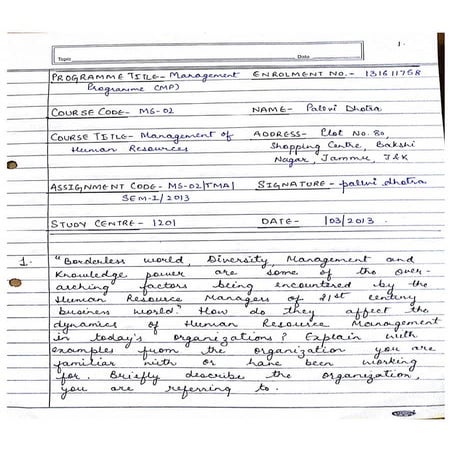 1.
Topic Date
PROGRAMME TITLE- Management ENROLMENT NO.- 131611758
Programme (MP)
COURSE CODE- MS-02 NAME- Pallvi Dhotra
COURSE TITLE- Management of ADDRESS- Plot No. 80,
Human Resources Shopping Centre, Bakshi
Nagar, Jammu, J&K
ASSIGNMENT CODE- MS-02/TMA/ SIGNATURE- pallvi dhotra
SEM-I/2013
STUDY CENTRE- 1201 DATE- /03/2013
1. "Borderless world, Diversity Management and
Knowledge power are some of the over-
arching factors being encountered by the
Human Resource Managers of 21st century
business world." How do they affect the
dynamics of Human Resource Management
in today's organizations? Explain with
examples from the organization you are
familiar with or have been working
for. Briefly describe the organization,
you are referring to.